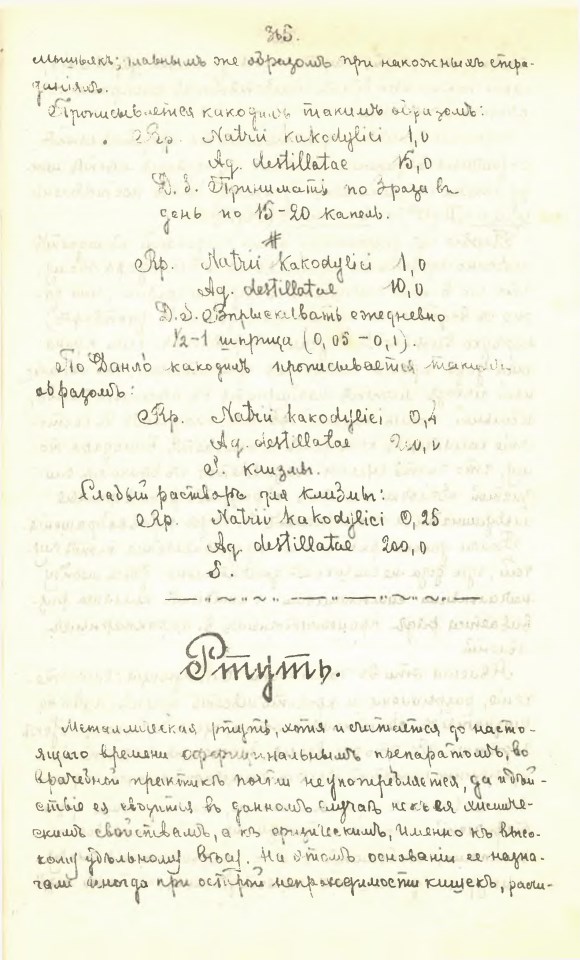 365.
мышьякъ; главнымъ же образомъ при накожныхъ стра-
данiяхъ.
Прописывается какодилъ такимъ образомъ:
Rp. Natrii kakodylici 1,0
Aq. destillatae 15,0
D. S. Принимать по 3 раза въ
день по 15-20 капель.
#
Rp. Natrii kakodylici 1,0
Aq. destillatae 10,0
D. S. Впрыскивать ежедневно
1/2-1 шприца (0,05-0,1).
По Данло какодилъ прописывается такимъ
образомъ:
Rp. Natrii kakodylici 0,4
Aq. destillatae 200,0
S. клизмы.
Слабый растворъ для клизмы:
Rp. Natrii kakodylici 0,25
Aq. destillatae 200,0
S.
Ртуть.
Металлическая ртуть, хотя и считается до насто-
ящаго времени оффицинальнымъ препаратомъ, во
врачебной практикѣ почти не употребляется, да и дѣй-
ствiе ея сводится въ данномъ случаѣ не къ ея химиче-
скимъ свойствамъ, а къ физическимъ, именно къ высо-
кому удѣльному вѣсу. На этомъ основанiи ее назна-
чали иногда при острой непроходимости кишекъ, расчи-